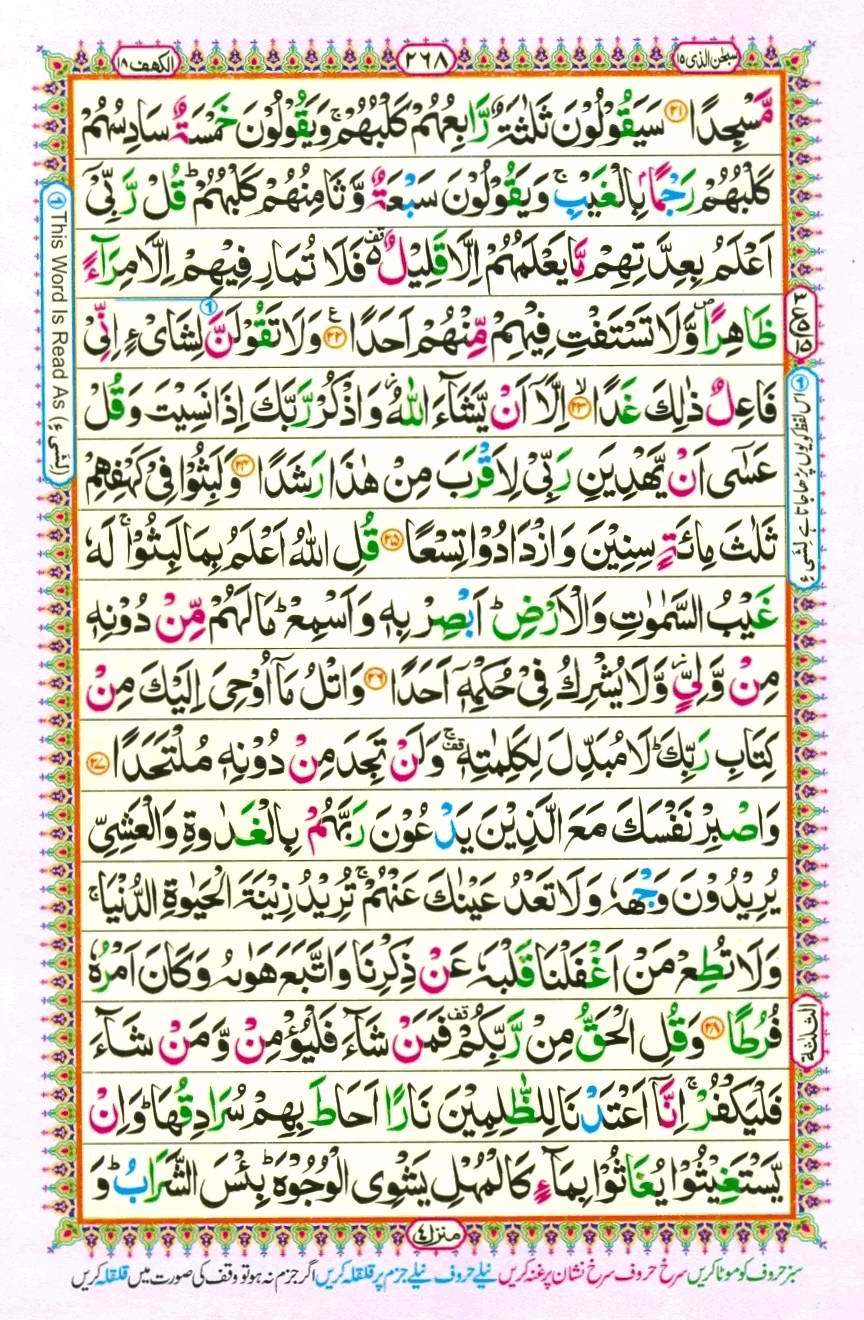 سبحٰن الذی ١٥
٢٦٨
الکھف ١٨
مَّسْجِدًا ﴿٢١﴾ سَیَقُوْلُوْنَ ثَلٰثَةٌ رَّابِعُهُمْ كَلْبُهُمْ ۚ وَیَقُوْلُوْنَ خَمْسَةٌ سَادِسُهُمْ
كَلْبُهُمْ رَجْمًۢا بِالْغَیْبِ ۚ وَیَقُوْلُوْنَ سَبْعَةٌ وَّثَامِنُهُمْ كَلْبُهُمْ ؕ قُلْ رَّبِّیْۤ
اَعْلَمُ بِعِدَّتِهِمْ مَّا یَعْلَمُهُمْ اِلَّا قَلِیْلٌ ۫۬ فَلَا تُمَارِ فِیْهِمْ اِلَّا مِرَآءً
ظَاهِرًا ۪ وَّلَا تَسْتَفْتِ فِیْهِمْ مِّنْهُمْ اَحَدًا ﴿٢٢﴾ ع وَلَا تَقُوْلَنَّ لِشَایْءٍ اِنِّیْ
فَاعِلٌ ذٰلِكَ غَدًا ﴿٢٣﴾ ۙ اِلَّاۤ اَنْ یَّشَآءَ اللّٰهُ ؗ وَاذْكُرْ رَّبَّكَ اِذَا نَسِیْتَ وَقُلْ
عَسٰۤی اَنْ یَّهْدِیَنِ رَبِّیْ لِاَقْرَبَ مِنْ هٰذَا رَشَدًا ﴿٢٤﴾ وَلَبِثُوْا فِیْ كَهْفِهِمْ
ثَلٰثَ مِائَةٍ سِنِیْنَ وَازْدَادُوْا تِسْعًا ﴿٢٥﴾ قُلِ اللّٰهُ اَعْلَمُ بِمَا لَبِثُوْا ۚ لَهٗ
غَیْبُ السَّمٰوٰتِ وَالْاَرْضِ ؕ اَبْصِرْ بِهٖ وَاَسْمِعْ ؕ مَا لَهُمْ مِّنْ دُوْنِهٖ
مِنْ وَّلِیٍّ ؗ وَّلَا یُشْرِكُ فِیْ حُكْمِهٖۤ اَحَدًا ﴿٢٦﴾ وَاتْلُ مَاۤ اُوْحِیَ اِلَیْكَ مِنْ
كِتَابِ رَبِّكَ ؕ لَا مُبَدِّلَ لِكَلِمٰتِهٖ ۚ۫ وَلَنْ تَجِدَ مِنْ دُوْنِهٖ مُلْتَحَدًا ﴿٢٧﴾
وَاصْبِرْ نَفْسَكَ مَعَ الَّذِیْنَ یَدْعُوْنَ رَبَّهُمْ بِالْغَدٰوةِ وَالْعَشِیِّ
یُرِیْدُوْنَ وَجْهَهٗ وَلَا تَعْدُ عَیْنٰكَ عَنْهُمْ ۚ تُرِیْدُ زِیْنَةَ الْحَیٰوةِ الدُّنْیَا ۚ
وَلَا تُطِعْ مَنْ اَغْفَلْنَا قَلْبَهٗ عَنْ ذِكْرِنَا وَاتَّبَعَ هَوٰىهُ وَكَانَ اَمْرُهٗ
فُرُطًا ﴿٢٨﴾ وَقُلِ الْحَقُّ مِنْ رَّبِّكُمْ ۫ فَمَنْ شَآءَ فَلْیُؤْمِنْ وَّمَنْ شَآءَ
فَلْیَكْفُرْ ۚ اِنَّاۤ اَعْتَدْنَا لِلظّٰلِمِیْنَ نَارًا اَحَاطَ بِهِمْ سُرَادِقُهَا ؕ وَاِنْ
یَّسْتَغِیْثُوْا یُغَاثُوْا بِمَآءٍ كَالْمُهْلِ یَشْوِی الْوُجُوْهَ ؕ بِئْسَ الشَّرَابُ ؕ وَ
① This Word Is Read As (لِشَیْءٍ)
① اس لفظ کو یوں پڑھا جاتا ہے لِشَیْءٍ
الثلثة
منزل ٤
سبز حروف کو موٹا کریں سرخ حروف سرخ نشان پر غنہ کریں نیلے حروف نیلے جزم پر قلقلہ کریں اگر جزم نہ ہو تو وقف کی صورت میں قلقلہ کریں